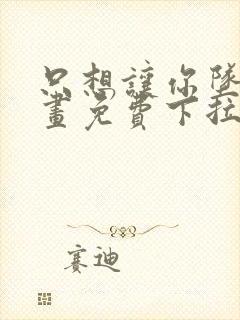 只想讓你墜
畫免費下拉
賽迪